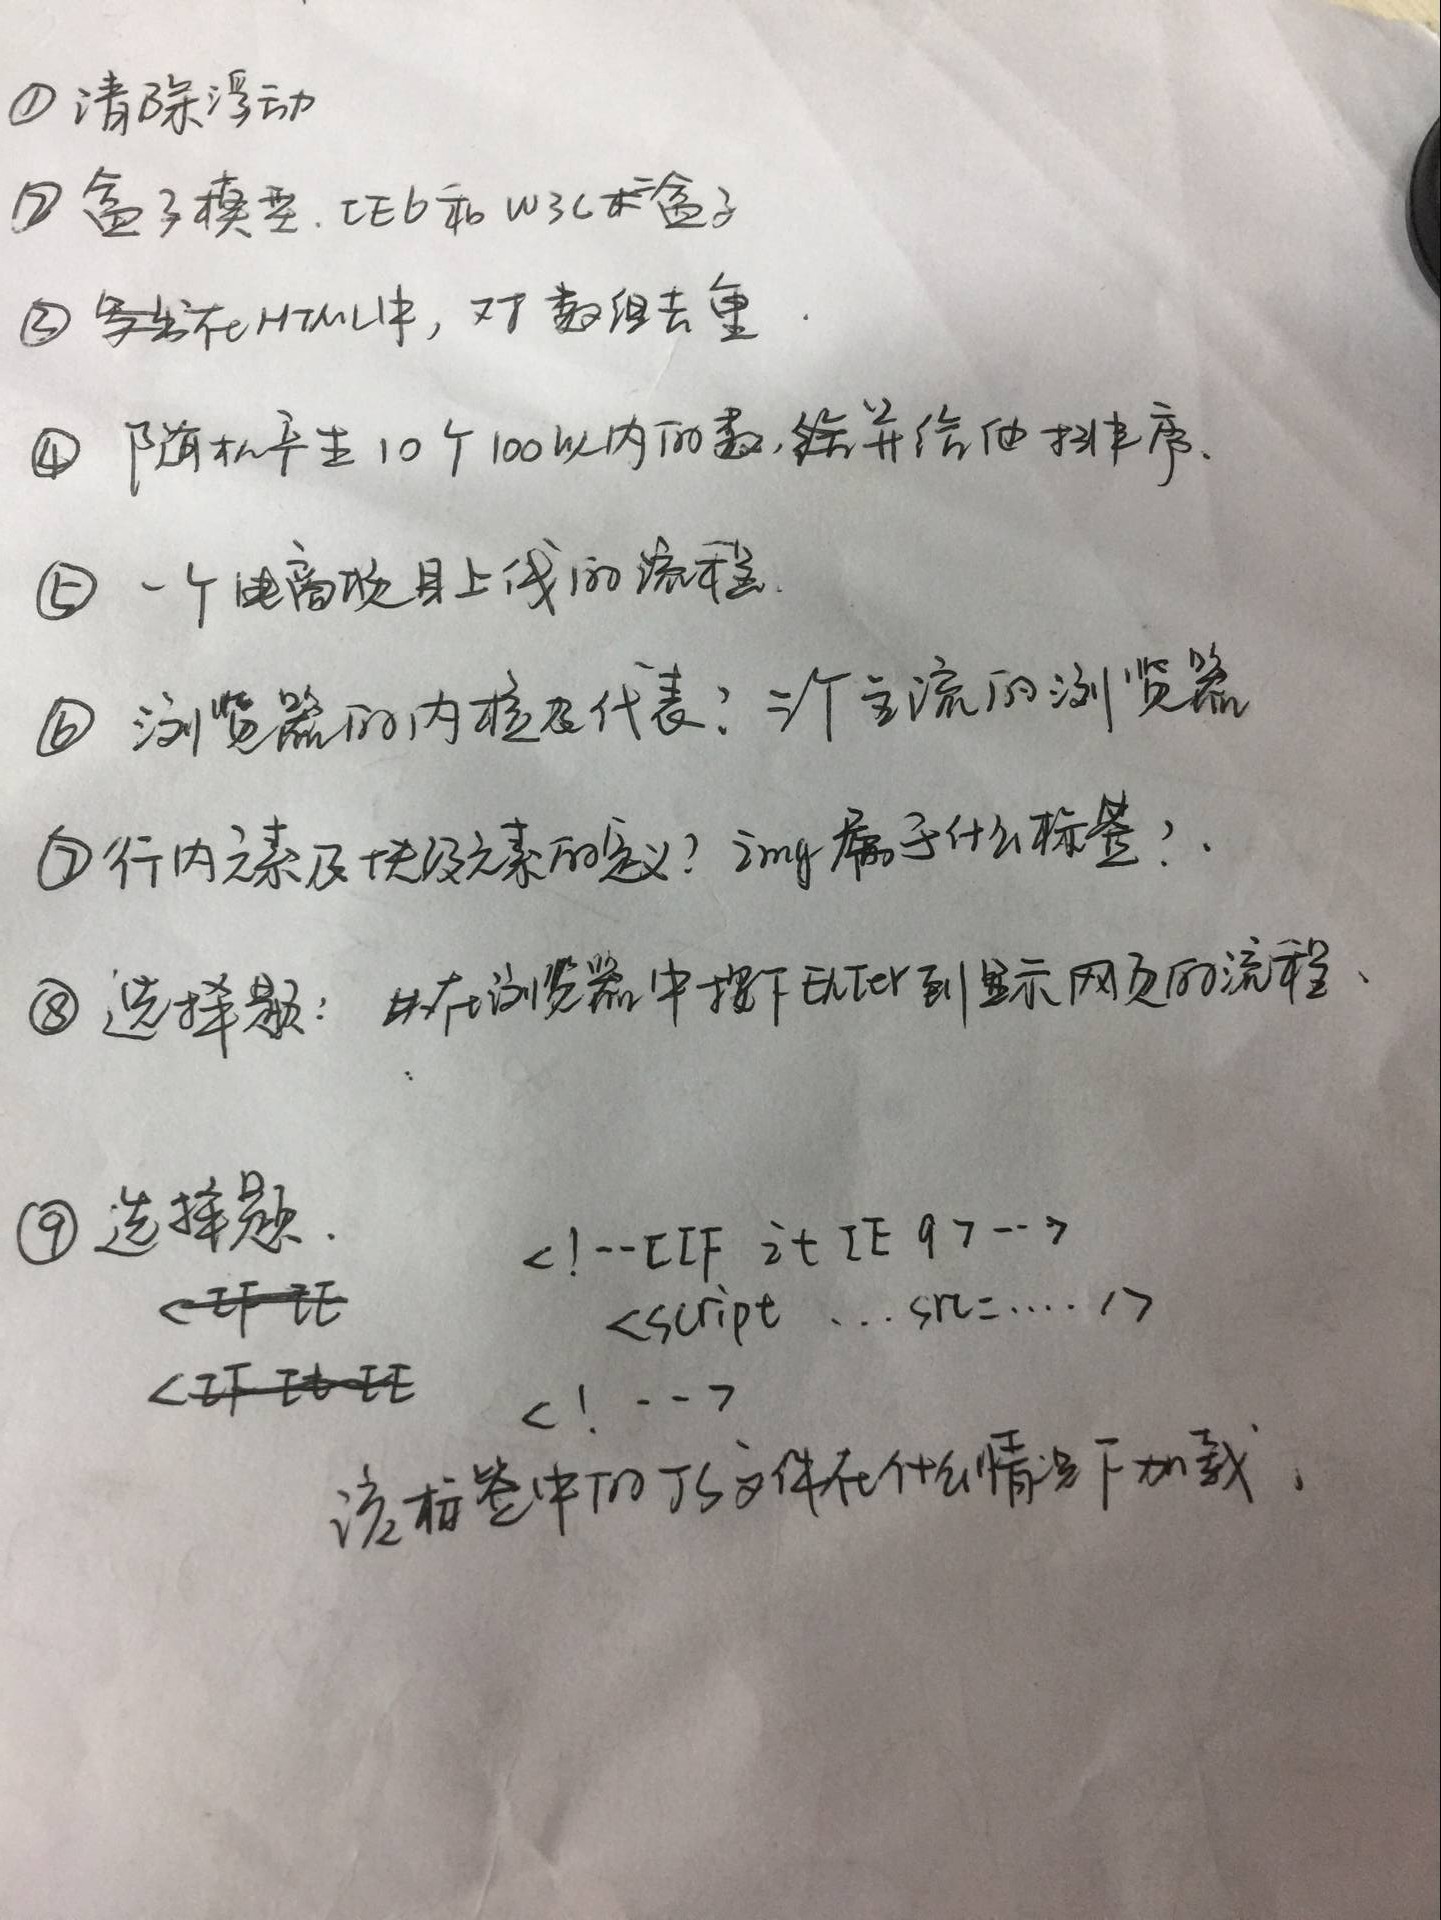 ① 清除浮动
② 盒子模型. IE6和W3C标盒子
③ 写出在HTML中, 对数组去重.
④ 随机产生10个100以内的数, 并给他排序.
⑤ 一个电商项目上线的流程.
⑥ 浏览器的内核及代表? 三个主流的浏览器
⑦ 行内元素及块级元素的定义? img属于什么标签?.
⑧ 选择题: 在浏览器中按下Enter到显示网页的流程.
⑨ 选择题.
<!--[IF it IE 9>-->
<IF IE
<script ... src=.... />
<IF It IE
<! --->
该标签中的JS文件在什么情况下加载.